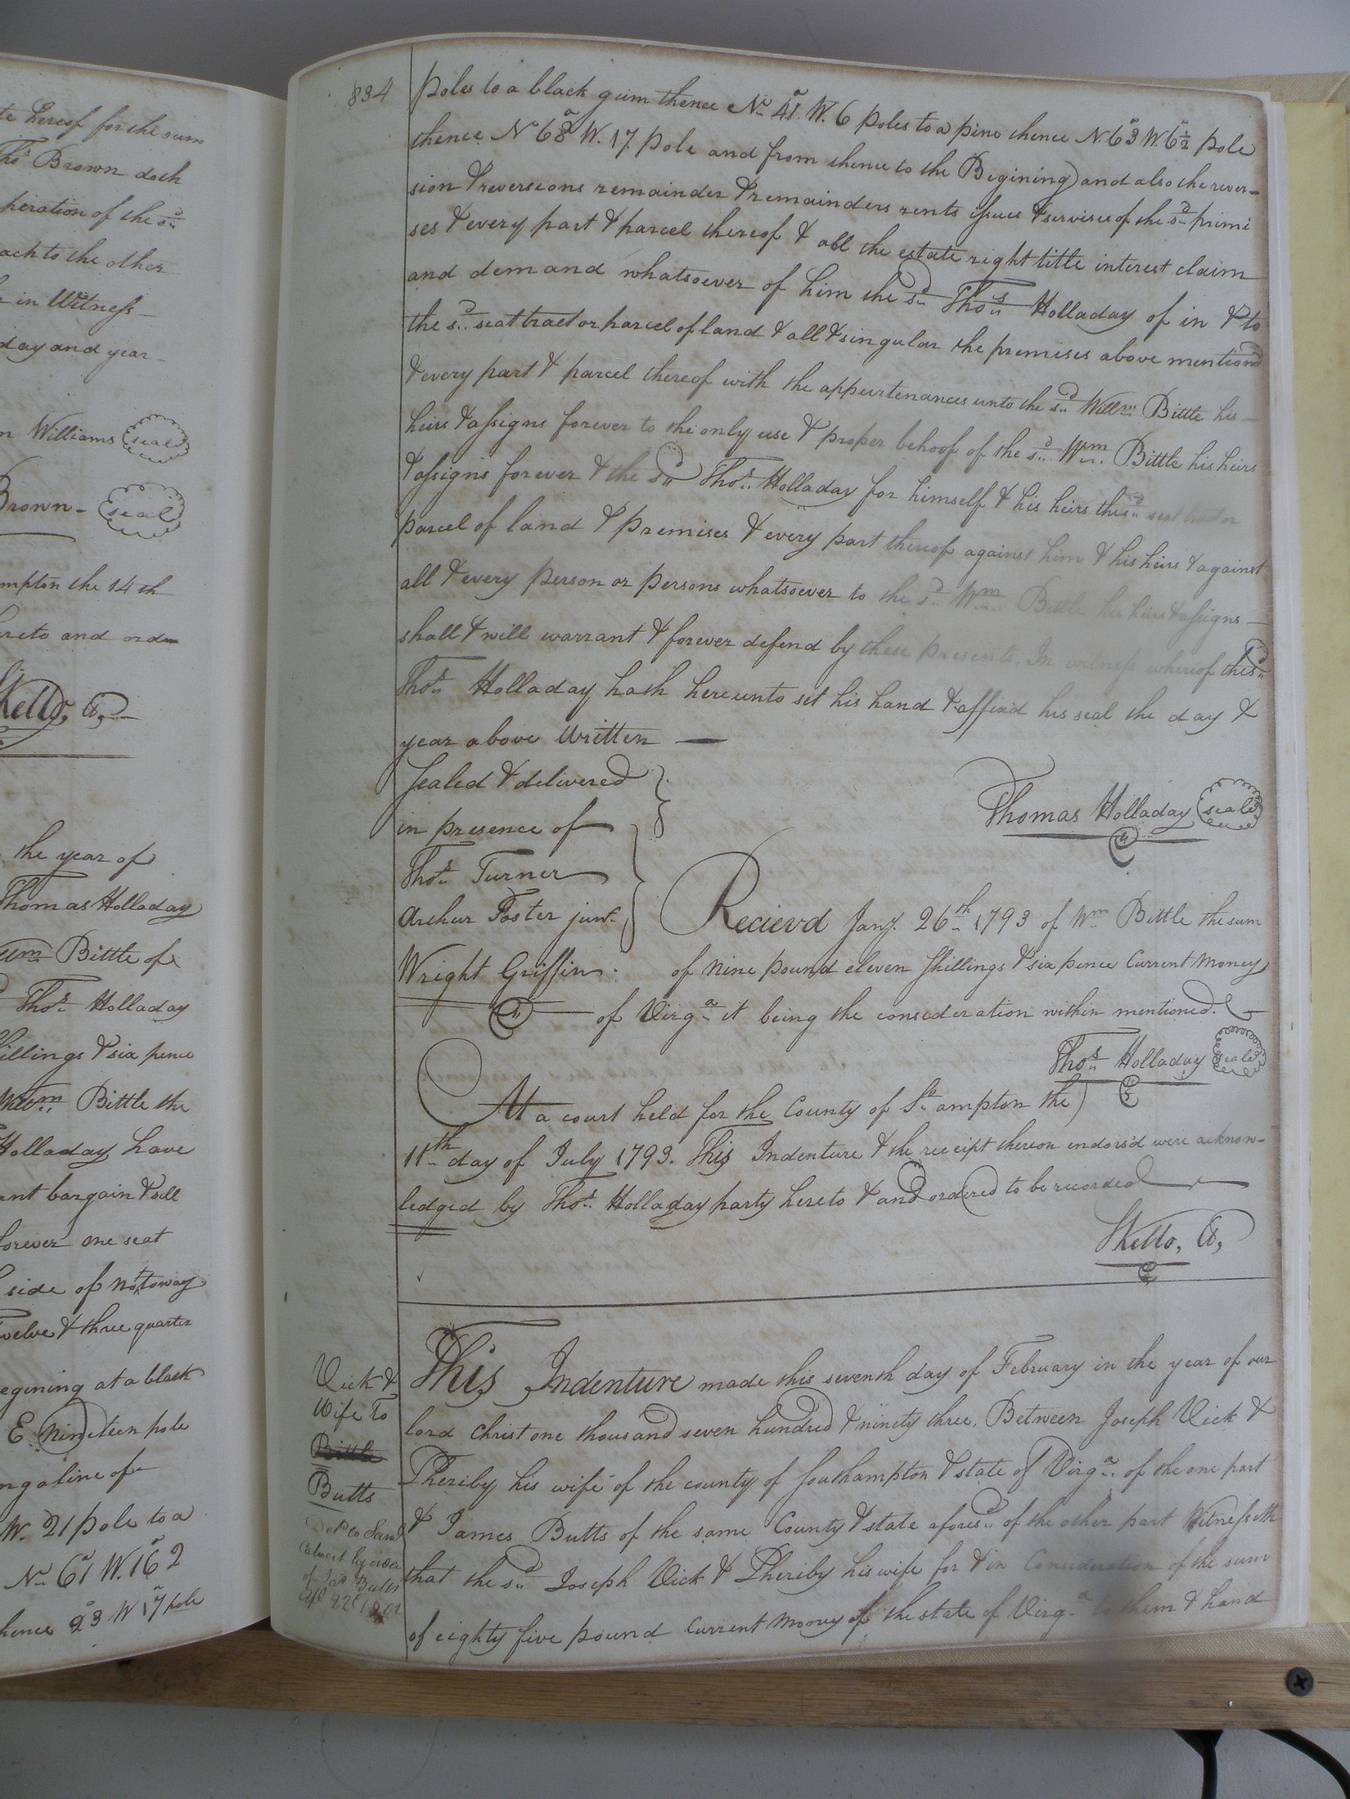 te hereof for the sum
Thos. Brown doth
peration of the sd.
each to the other
in Witness
day and year
n Williams seal
Brown seal
mpton the 14th
hereto and orde
Skello, Cl,
the year of
Thomas Holladay
Bittle of
Thos. Holladay
hillings & six pence
Willm. Bittle the
Holladay have
ant bargain & sell
forever one seat
side of Nottoway
twelve & three quarter
egining at a black
E. Nineteen pole
ng a line of
W. 21 pole to a
No. 61 W. 16 2
hence 93 W 17 pole
834
poles to a black gum thence No. 41. W. 6 poles to a pine thence N. 63 W. 6½ pole
thence No 68 W. 17 pole and from thence to the Begining) and also the rever-
sion & reversions remainder & remainders rents issues & servises of the sd. primi
ses & every part & parcel thereof & all the estate right title interest claim
and demand whatsoever of him the sd. Thos. Holladay of in & to
the sd. seat tract or parcel of land & all & singular the premises above mentiond
& every part & parcel thereof with the appurtenances unto the sd. Willm. Bittle his
heirs & assigns forever to the only use & proper behoof of the sd. Wm. Bittle his heirs
& assigns forever & the sd. Thos. Holladay for himself & his heirs the sd. seat tract or
parcel of land & premises & every part thereof against him & his heirs & against
all & every person or persons whatsoever to the sd. Wm. Bittle his heirs & assigns
shall & will warrant & forever defend by these presents. In witness whereof the sd.
Thos. Holladay hath hereunto set his hand & affixd his seal the day &
year above Written
Sealed & delivered
in presence of
Thos. Turner
Arthur Foster junr.
Wright Griffin.
Thomas Holladay seal
Recievd Jany. 26th 1793 of Wm. Bittle the sum
of Nine pound eleven Shillings & six pence Current Money
of Virga. it being the consideration within mentioned.
Thos. Holladay seal
At a court held for the County of So.ampton the
11th day of July 1793. This Indenture & the receipt thereon endorsd were acknow-
ledged by Thos. Holladay party hereto & and ordered to be recorded
Skello, Cl,
Vick &
Wife To
Bittle
Butts
This Indenture made this seventh day of February in the year of our
lord Christ one thousand seven hundred & ninety three. Between Joseph Vick &
Pheriby his wife of the county of Southampton & state of Virga. of the one part
& James Butts of the same County & state aforesd. of the other part Witnesseth
that the sd. Joseph Vick & Pheriby his wife for & in Consideration of the sum
of eighty five pound Current Money of the state of Virga. to them & hand